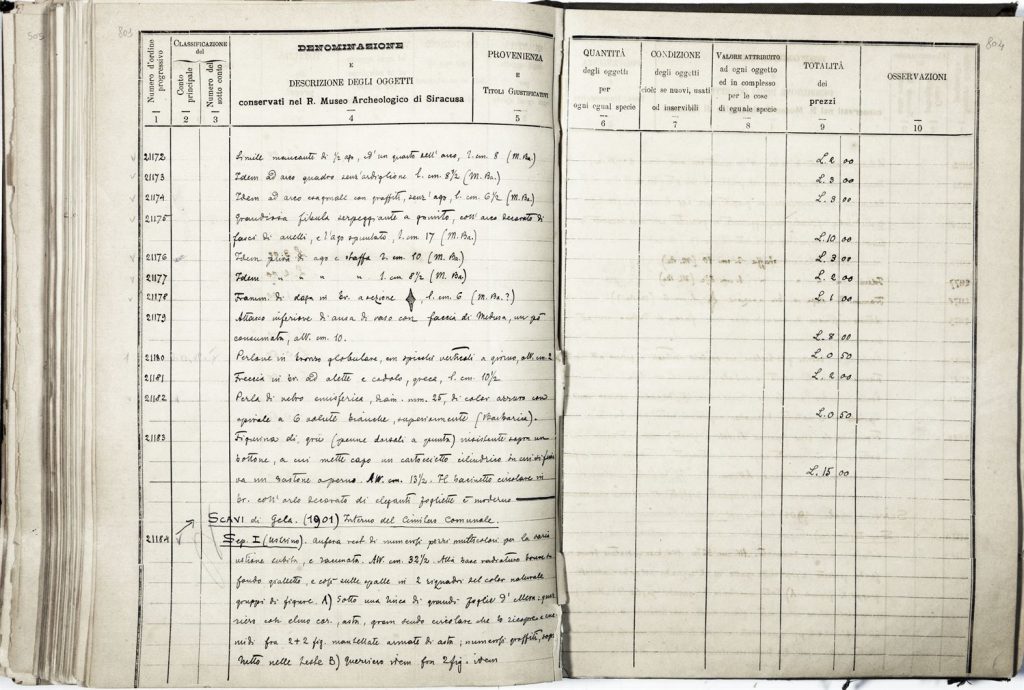 803
Numero d'ordine progressivo
CLASSIFICAZIONE del
Conto principale
Numero del sotto conto
DENOMINAZIONE
E
DESCRIZIONE DEGLI OGGETTI
conservati nel R. Museo Archeologico di Siracusa
PROVENIENZA
E
TITOLI GIUSTIFICATIVI
1 2 3 4 5
21172 Simile mancante di ½ ago, e d'un quarto dell'arco, l. cm. 8 (M. Ba.)
21173 Idem ad arco quadro senz'ardiglione l. cm. 8½ (M. Ba.)
21174 Idem ad arco con graffiti, senz'ago, l. cm. 6½ (M. Ba.)
21175 Grandiosa fibula serpeggiante a gomito, coll'arco decorato di
fasci di anelli, e l'ago spuntato, l. cm 17 (M. Ba.)
21176 Idem priva di ago e staffa l. cm. 10 (M. Ba.)
21177 Idem " " " " l. cm 8½ (M. Ba.)
21178 Framm. di daga in br. a sezione l. cm. 6 (M. Ba.?)
21179 Attacco inferiore di ansa di vaso con faccia di Medusa, un pò
consumata, alt. cm. 10.
21180 in bronzo globulare, verticali a giorno, alt. cm. 2
21181 Freccia in br. ad alette e codolo, greca, l. cm. 10½
21182 Perla di vetro emisferica, diam. mm. 25, di color azzurro con
spirale a 6 volute bianche, superiormente (Barbarica).
21183 Figurina di gru (penne dorsali a punta) insistente sopra un
bottone, a cui mette capo un cartoccietto cilindrico in cui si
va un bastone a perno. Alt. cm. 13½. Il bacinetto circolare in
br. coll'orlo decorato di eleganti fogliette è moderno
SCAVI di Gela. (1901) Interno del Cimitero Comunale.
21184 Sep. I (ustrino). Anfora rest. di numerosi pezzi multicolori per la varia
ustione subita, e lacunata. Alt. cm. 32½. Alla base radiatura bruna su
fondo gialletto, e così sulle spalle in 2 riquadri del color naturale
gruppi di figure. A) Sotto una linea di grandi foglie d'ellera, guer-
riero con elmo cor., asta, gran scudo circolare che lo ricopre
midi fra 2+2 fig. mantellate armate di asta; numerosi graffiti,
tutto nelle teste B) guerriero idem fra 2 fig. idem
804
QUANTITÀ
degli oggetti
per
ogni egual specie
CONDIZIONE
degli oggetti
cioè: se nuovi, usati
od inservibili
VALORE ATTRIBUITO
ad ogni oggetto
ed in complesso
per le cose
di eguale specie
TOTALITÀ
dei
prezzi
OSSERVAZIONI
6 7 8 9 10
L. 2 00
L. 3 00
L. 3 00
L. 10 00
L. 3 00
L. 2 00
L. 1 00
L. 8 00
L. 0 50
L. 2 00
L. 0 50
L. 15 00